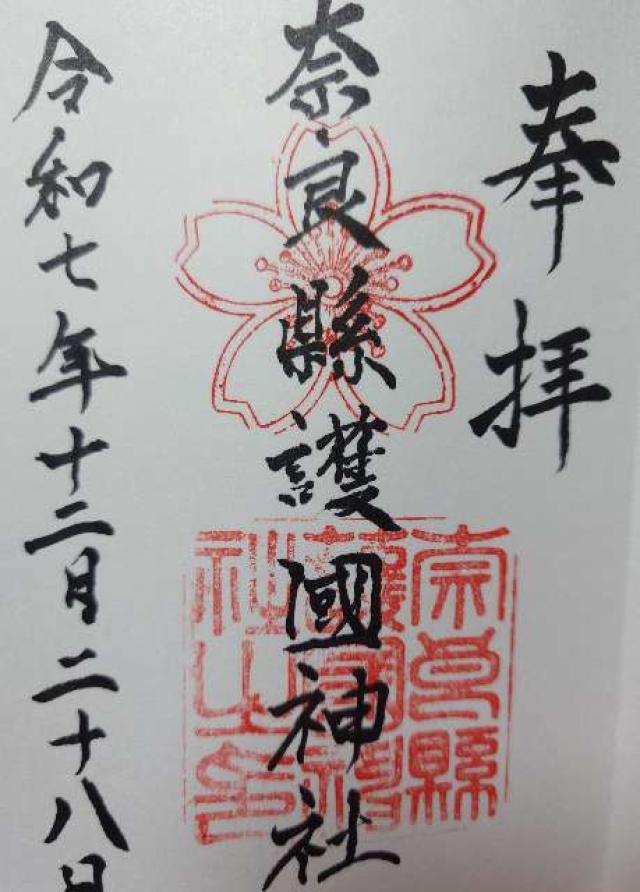 奉拝
奈良縣護國神社
奈良縣
護國神
社之印
令和七年十二月二十八日